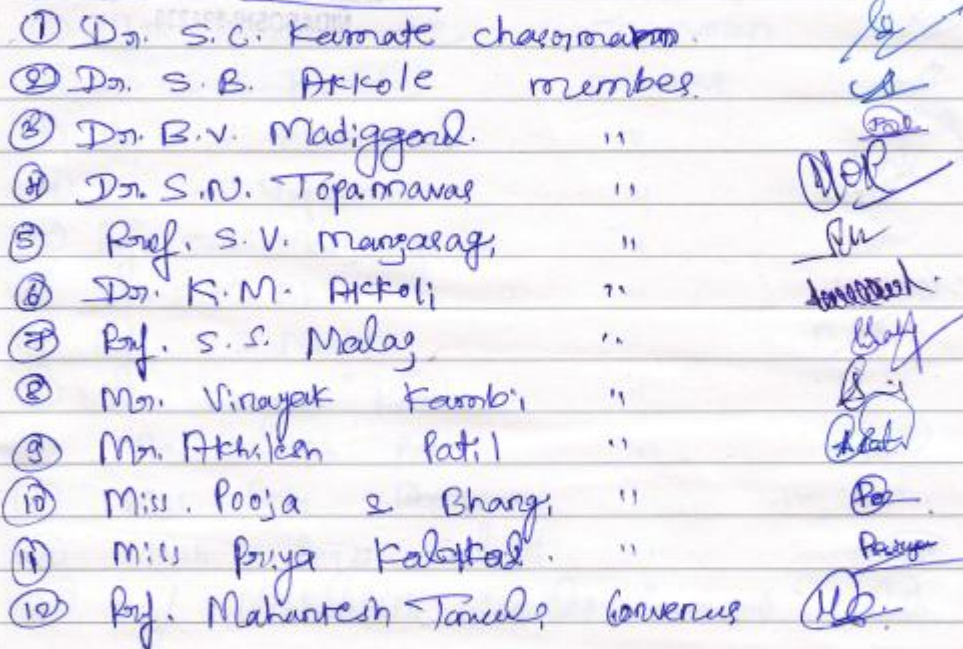 ① Dr. S.C. Kamate chairman.
② Dr. S.B. Akkole member
③ Dr. B.V. Madiggond. "
④ Dr. S.N. Topannavar "
⑤ Prof. S.V. Manjaragi "
⑥ Dr. K.M. Akkoli "
⑦ Prof. S.S. Malaj "
⑧ Mr. Vinayak Kambi "
⑨ Mr. Akhilesh Patil "
⑩ Miss. Pooja S Bhangi "
⑪ Miss Priya "
⑫ Prof. Mahantesh Convener